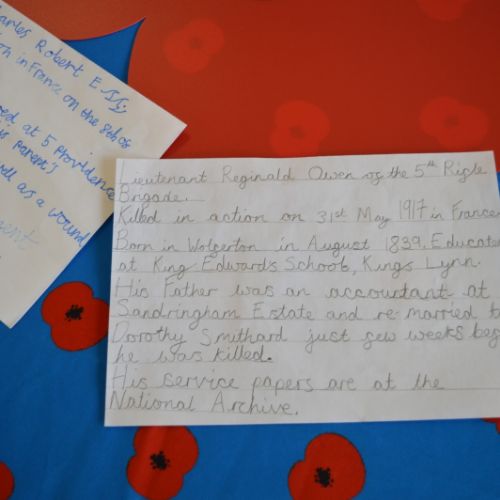 arles Robert E
on in France on the 8th of
ed at 5 Providence
Parent's
ell as a wound
ment
Lieutenant Reginald Owen of the 5th Rifle
Brigade.
Killed in action on 31st May 1917 in France
Born in Wolgerton in August 1839. Educated
at King Edward's School, Kings Lynn.
His Father was an accountant at
Sandringham Estate and re-married to
Dorothy Smithard just few weeks befo
he was killed.
His service papers are at the
National Archive.